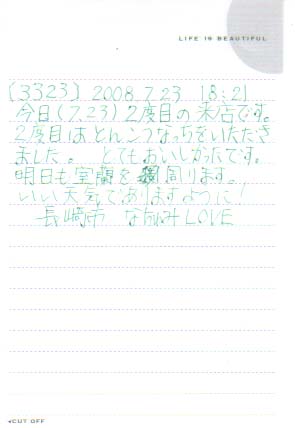 LIFE IS BEAUTIFUL
(3323) 2008.7.23 18:21
今日(7.23)2度目の来店です。
2度目はとんこつなっちをいただき
ました。とてもおいしかったです。
明日も室蘭を周ります。
いい天気でありますように!
長崎市 なちゅみLOVE
◂CUT OFF